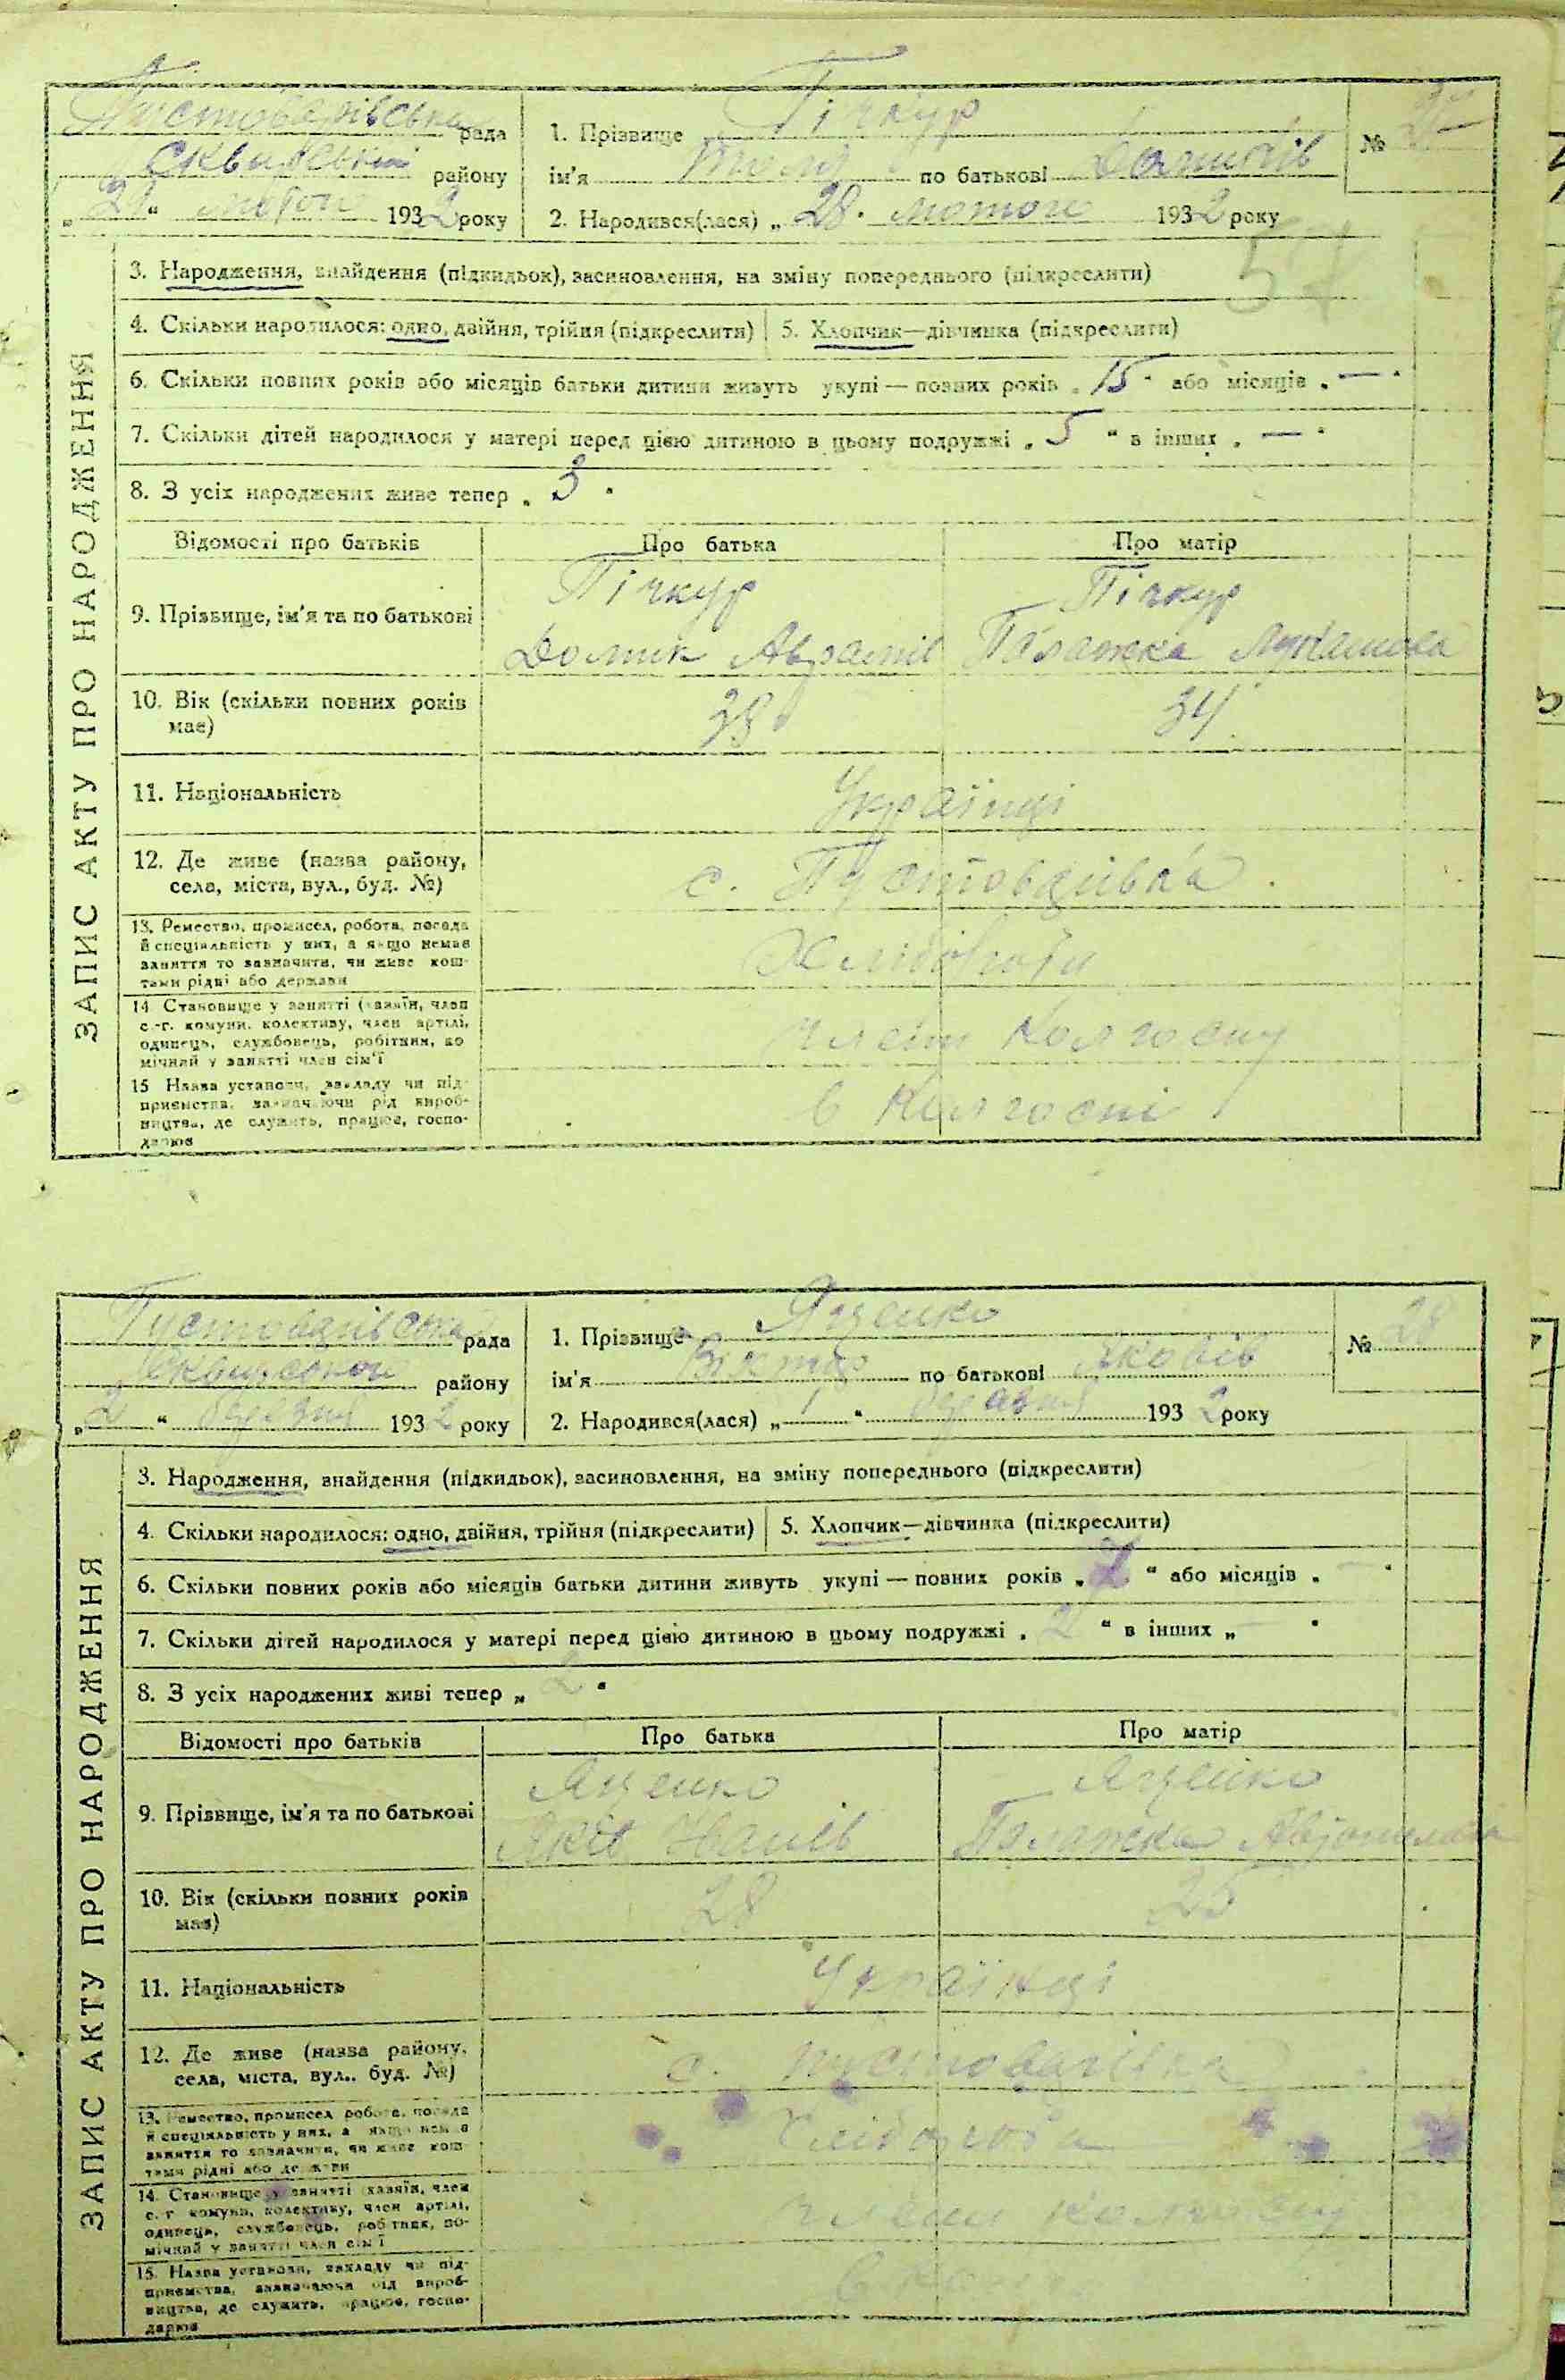 Пустоварівська рада
Сквирський району
1932 року
1. Прізвище Пічкур
ім'я по батькові Домиків
2. Народився(лася) „28" лютого 1932 року
№
57
ЗАПИС АКТУ ПРО НАРОДЖЕННЯ
3. Народження, знайдення (підкидьок), засиновлення, на зміну попереднього (підкреслити)
4. Скільки народилося: одно, двійня, трійня (підкреслити) 5. Хлопчик—дівчинка (підкреслити)
6. Скільки повних років або місяців батьки дитини живуть укупі — повних років „15" або місяців „—"
7. Скільки дітей народилося у матері перед цією дитиною в цьому подружжі „5" в інших „—"
8. З усіх народжених живе тепер „3"
Відомості про батьків Про батька Про матір
9. Прізвище, ім'я та по батькові
Пічкур Пічкур
Домик Аврамів Палажка
10. Вік (скільки повних років має)
38 34
11. Національність Українці
12. Де живе (назва району,
села, міста, вул., буд. №)
с. Пустоварівка
13. Ремество, промисел, робота, посада
й спеціяльність у них, а якщо немає
заняття то зазначити, чи живе кош-
тами рідні або держави
Хлібороби
14 Становище у занятті (хазяїн, член
с.-г. комуни, колективу, член артілі,
одинець, службовець, робітник, по
мічний у занятті член сім'ї
члени колгоспу
15 Назва установи, закладу чи під-
приємства, зазначаючи рід вироб-
ництва, де служить, працює, госпо-
дарює
в колгоспі
Пустоварівська рада
району
„2" березня 1932 року
1. Прізвище Яценко
ім'я Віктор по батькові Яковів
2. Народився(лася) „1" березня 1932 року
№ 28
ЗАПИС АКТУ ПРО НАРОДЖЕННЯ
3. Народження, знайдення (підкидьок), засиновлення, на зміну попереднього (підкреслити)
4. Скільки народилося: одно, двійня, трійня (підкреслити) 5. Хлопчик—дівчинка (підкреслити)
6. Скільки повних років або місяців батьки дитини живуть укупі — повних років „ " або місяців „—"
7. Скільки дітей народилося у матері перед цією дитиною в цьому подружжі „2" в інших „—"
8. З усіх народжених живі тепер „2"
Відомості про батьків Про батька Про матір
9. Прізвище, ім'я та по батькові
Яценко Яценко
Яків Іванів Палажка
10. Вік (скільки повних років має)
28 25
11. Національність Українці
12. Де живе (назва району,
села, міста, вул., буд. №)
с. Пустоварівка
13. Ремество, промисел, робота, посада
й спеціяльність у них, а якщо нема
заняття то зазначити, чи живе кош-
тами рідні або держави
Хлібороби
14. Становище у занятті (хазяїн, член
с.-г. комуни, колективу, член артілі,
одинець, службовець, робітник, по-
мічний у занятті член сім'ї
члени колгоспу
15. Назва установи, закладу чи під-
приємства, зазначаючи рід вироб-
ництва, де служить, працює, госпо-
дарює